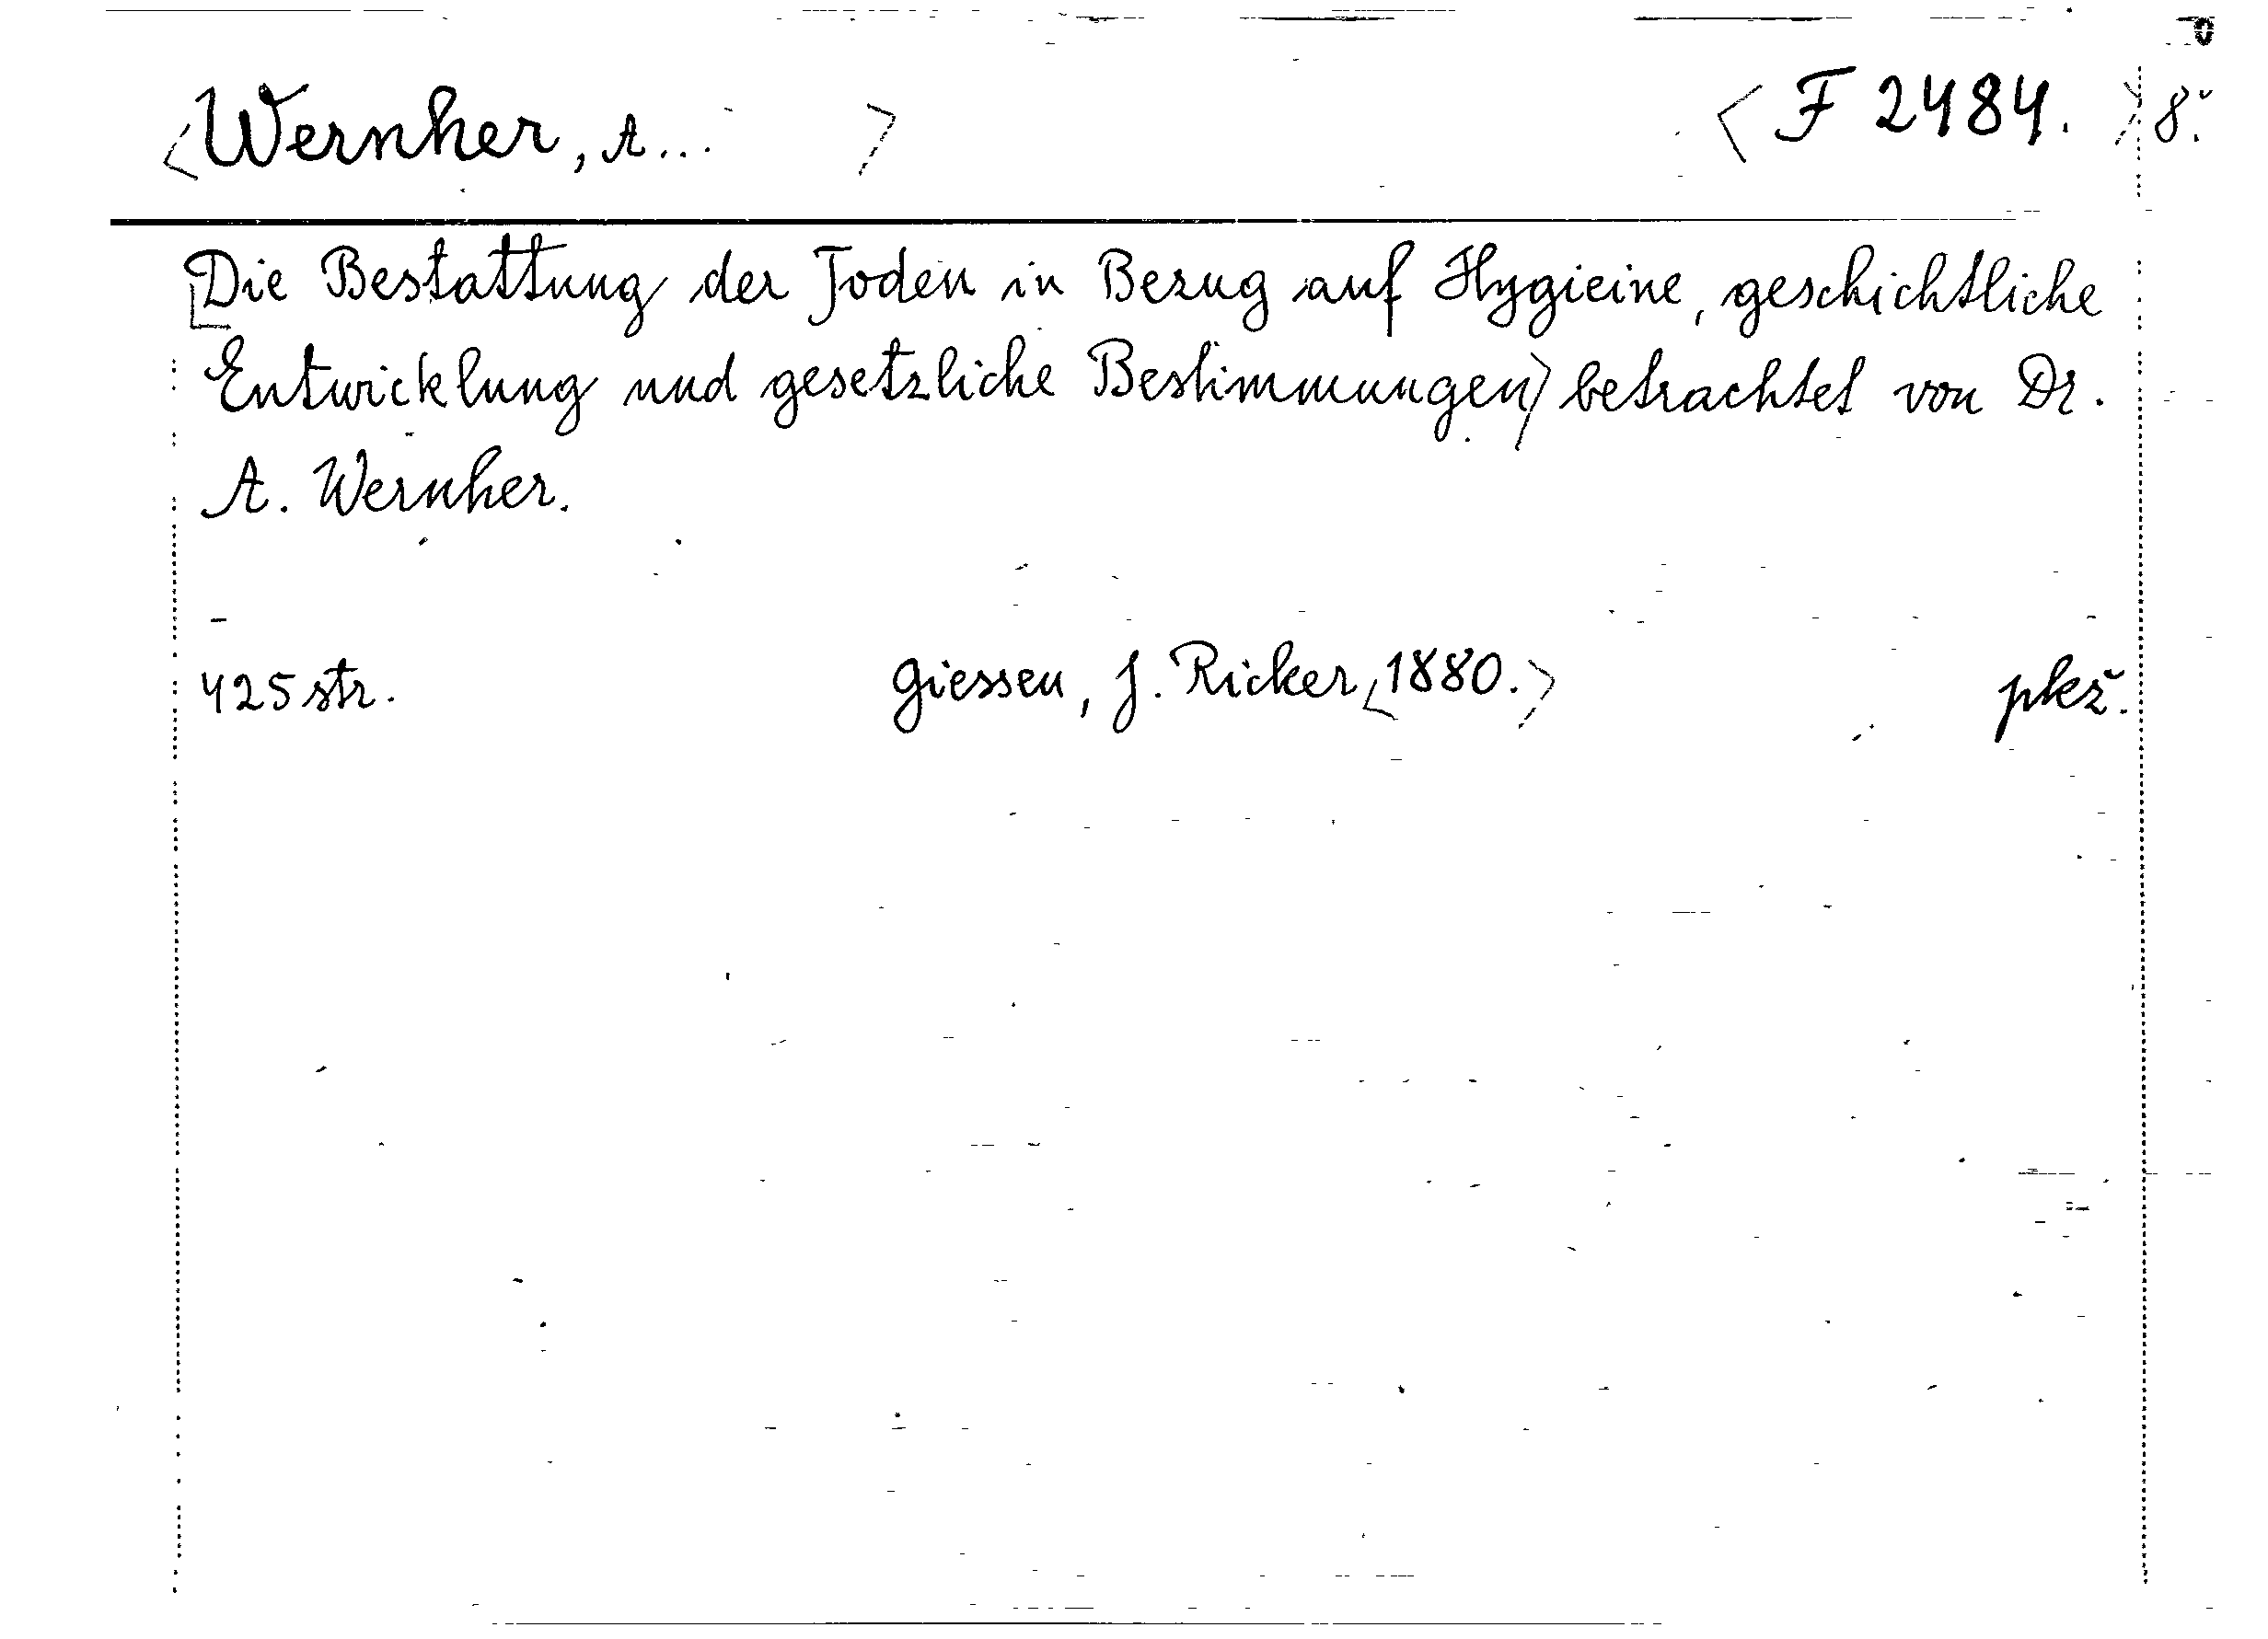 <Wernher, A... > <F 2484. > 8°.
Die Bestattung der Toden in Bezug auf Hygieine, geschichtliche
Entwicklung und gesetzliche Bestimmungen> betrachtet von Dr.
A. Wernher.
425 str. Giessen, J. Ricker, <1880.> pkž.